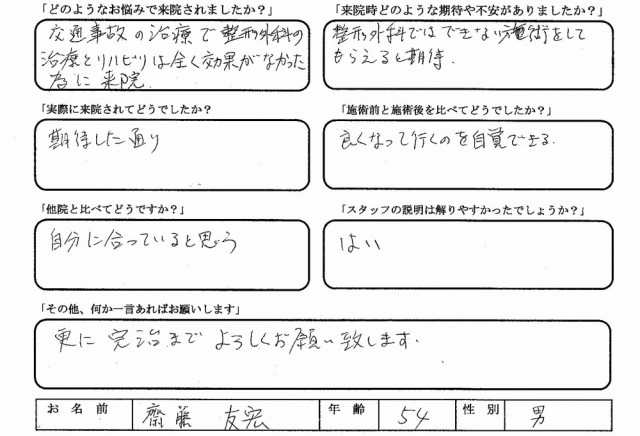 「どのようなお悩みで来院されましたか？」
交通事故の治療で整形外科の
治療とリハビリは全く効果がなかった
為に来院.
「来院時どのような期待や不安がありましたか？」
整形外科ではできない施術をして
もらえると期待.
「実際に来院されてどうでしたか？
期待した通り
「施術前と施術後を比べてどうでしたか？」
良くなって行くのを自覚できる.
「他院と比べてどうですか？」
自分に合っていると思う
「スタッフの説明は解りやすかったでしょうか？」
はい
「その他、何か一言あればお願いします」
更に 完治まで よろしくお願い致します.
お名前 齋藤 友宏 年齢 54 性別 男